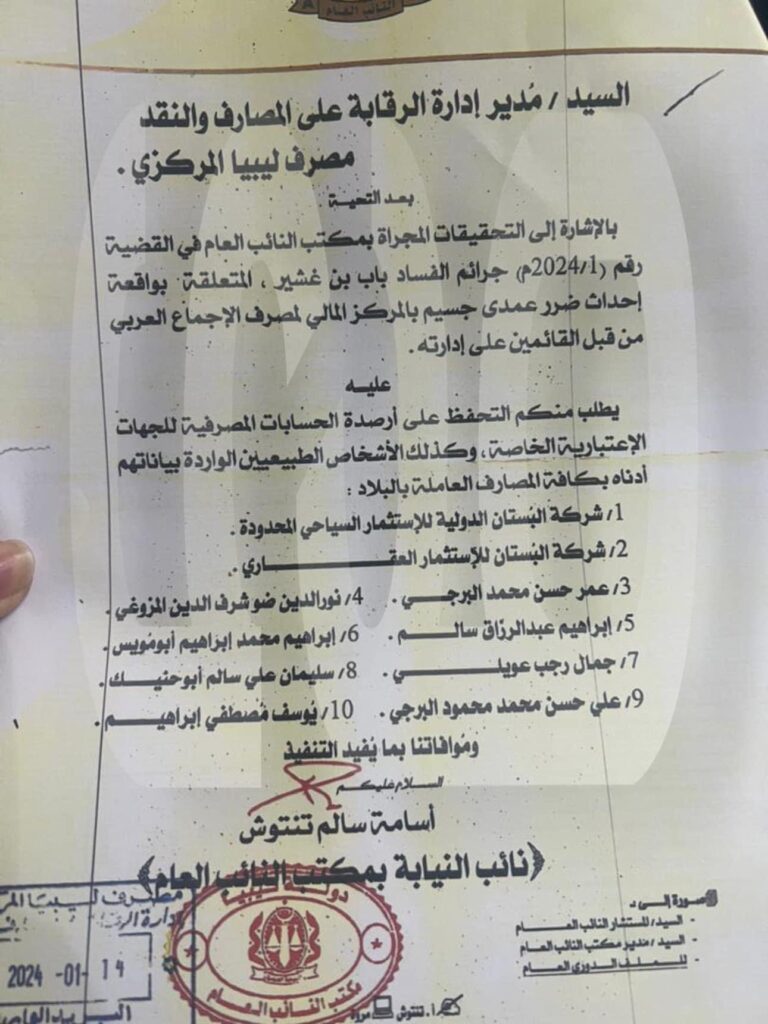 النائب العام
السيد / مُدير إدارة الرقابة على المصارف والنقد
مصرف ليبيا المركزي .
بعد التحية
بالإشارة إلى التحقيقات المجراة بمكتب النائب العام في القضية
رقم (2024/1م) جرائم الفساد باب بن غشير ، المتعلقة بواقعة
إحداث ضرر عمدى جسيم بالمركز المالي لمصرف الإجماع العربي
من قبل القائمين على إدارته .
عليه
يطلب منكم التحفظ على أرصدة الحسابات المصرفية للجهات
الإعتبارية الخاصة ، وكذلك الأشخاص الطبيعيين الواردة بياناتهم
أدناه بكافة المصارف العاملة بالبلاد :
1/ شركة البُستان الدولية للإستثمار السياحي المحدودة .
2/ شركة البُستان للإستثمار العقاري .
3/ عمر حسن محمد البرجي . 4/ نورالدين ضو شرف الدين المزوغي .
5/ إبراهيم عبدالرزّاق سالم . 6/ إبراهيم محمد إبراهيم أبومُويس .
7/ جمال رجب عويلي . 8/ سليمان علي سالم أبوحنيك .
9/ علي حسن محمد محمود البرجي . 10/ يُوسف مُصطفي إبراهيم .
ومُوافاتنا بما يُفيد التنفيذ
السلام عليكم
أسامة سالم تنتوش
﴿نائب النيابة بمكتب النائب العام﴾
صورة إلى :
- السيد/ المستشار النائب العام
- السيد/ مدير مكتب النائب العام
- للملف الدوري العام
أ. تنتوش
دولة ليبيا
مكتب النائب العام
مصرف ليبيا المر
إدارة الرقا
2024 -01- 14
البريد العام